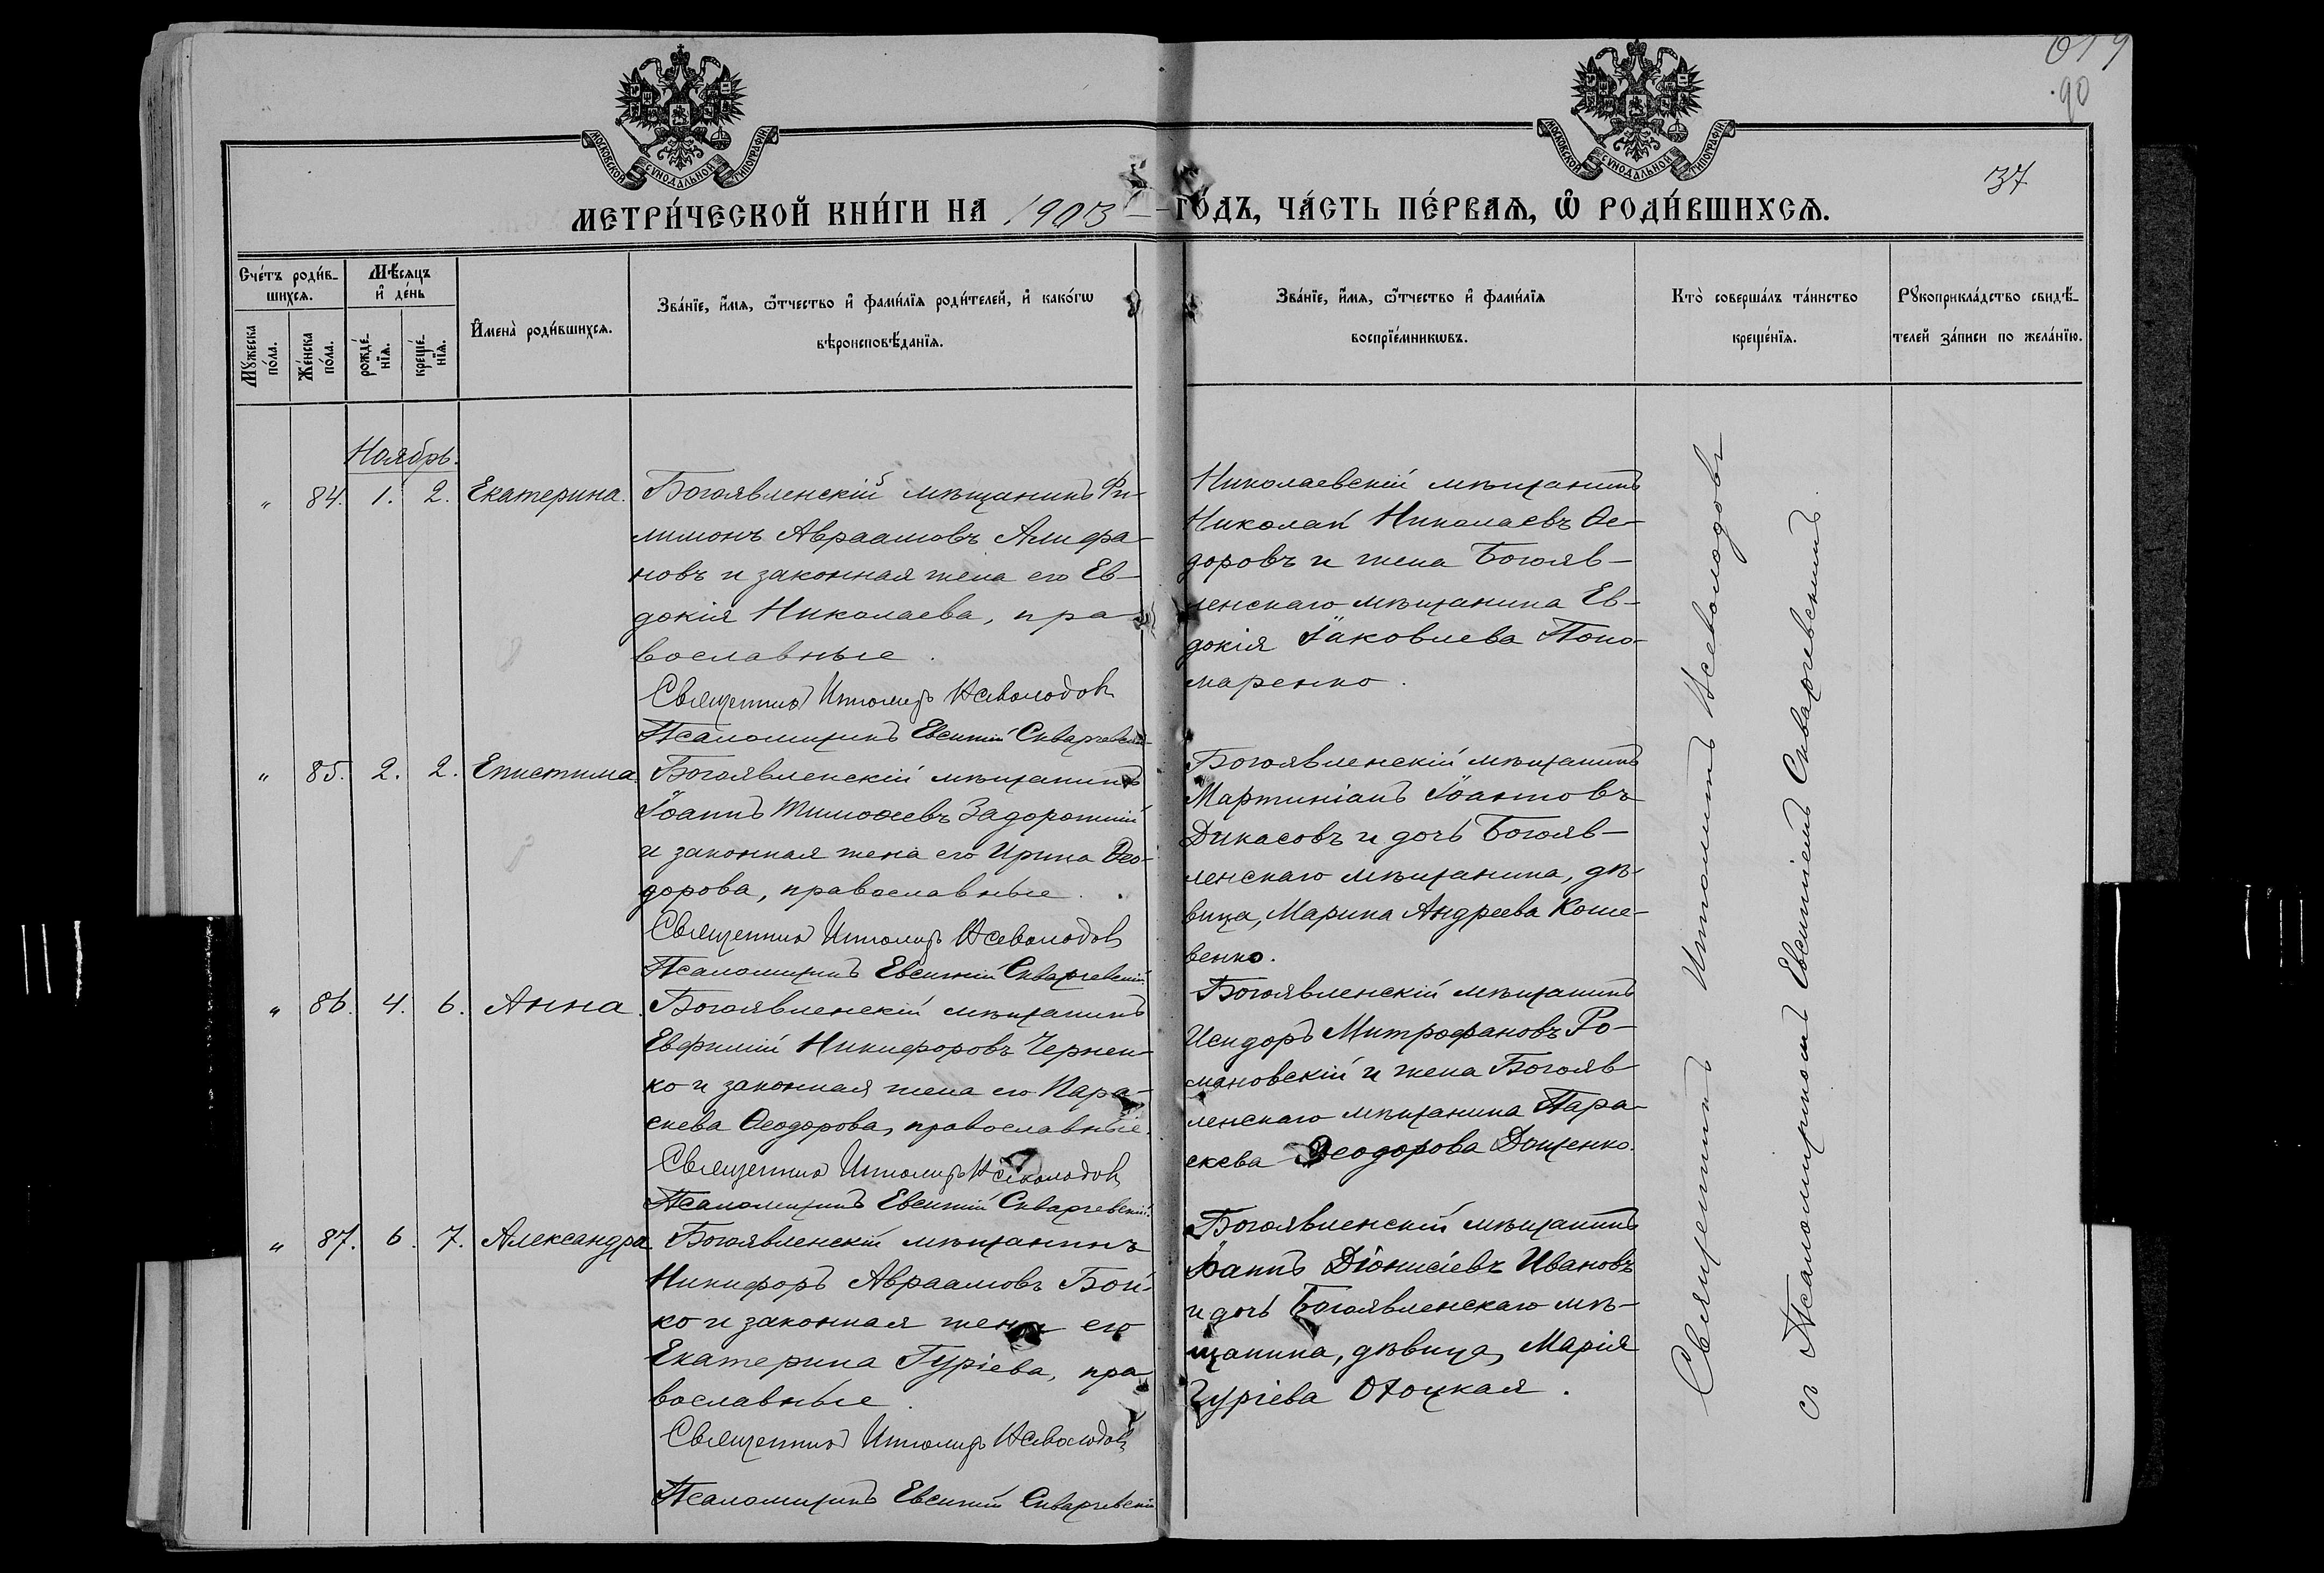 019
90
37
МОСКОВСКОЙ СѴНОДАЛЬНОЙ ТИПОГРАФІИ
МОСКОВСКОЙ СѴНОДАЛЬНОЙ ТИПОГРАФІИ
МЕТРИ́ЧЕСКОЙ КНИ́ГИ НА 1903 ГО́ДЪ, ЧА́СТЬ ПЕ́РВАѦ, Ѽ РОДИ́ВШИХСѦ.
Счéтъ роди́в-
шихсѧ.
Мѣ́сѧцъ
и҆ де́нь
Мꙋ́жеска
по́ла.
Же́нска
по́ла.
рожде́-
нїѧ.
креще́-
нїѧ.
И҆мена̀ роди́вшихсѧ.
Зва́нїе, и҆́мѧ, ѻ҆́тчество и҆ фами́лїѧ роди́телей, и҆ како́гѡ
вѣроисповѣ́данїѧ.
Зва́нїе, и҆́мѧ, ѻ҆́тчество и҆ фами́лїѧ
воспрїе́мникѡвъ.
Кто̀ соверша́лъ та́инство
креще́нїѧ.
Рꙋкоприкла́дство свидѣ́-
телей за́писи по жела́нїю.
Ноябрь.
" 84. 1. 2. Екатерина. Богоявленскій мѣщанинъ Фи-
лимонъ Авраамовъ Алифа-
новъ и законная жена его Ев-
докія Николаева, пра-
вославные.
Священникъ Ипполитъ Неволодовъ
Псаломщикъ Евсигній Скваржевскій
Николаевскій мѣщанинъ
Николай Николаевъ Ѳе-
доровъ и жена Богояв-
ленскаго мѣщанина Ев-
докія Іаковлева Поно-
маренко.
" 85. 2. 2. Епистима. Богоявленскій мѣщанинъ
Іоаннъ Тимоѳеевъ Задорожній
и законная жена его Ирина Ѳео-
дорова, православные.
Священникъ Ипполитъ Неволодовъ
Псаломщикъ Евсигній Скваржевскій.
Богоявленскій мѣщанинъ
Мартиніанъ Іоанновъ
Дикасовъ и дочь Богояв-
ленскаго мѣщанина, дѣ-
вица, Марина Андреева Коше-
венко.
" 86. 4. 6. Анна. Богоявленскій мѣщанинъ
Евфимій Никифоровъ Чернен-
ко и законная жена его Пара-
скева Ѳеодорова, православные.
Священникъ Ипполитъ Неволодовъ
Псаломщикъ Евсигній Скваржевскій.
Богоявленскій мѣщанинъ
Исидоръ Митрофановъ Ро-
мановскій и жена Богояв-
ленскаго мѣщанина Пара-
скева Ѳеодорова Доценко.
" 87. 6. 7. Александра. Богоявленскій мѣщанинъ
Никифоръ Авраамовъ Бой-
ко и законная жена его
Екатерина Гуріева, пра-
вославные.
Священникъ Ипполитъ Неволодовъ
Псаломщикъ Евсигній Скваржевскій
Богоявленскій мѣщанинъ
Іоаннъ Діонисіевъ Ивановъ
и дочь Богоявленскаго мѣ-
щанина, дѣвица, Марія
Гуріева
Священникъ Ипполитъ Неволодовъ
съ Псаломщикомъ Евсигніемъ Скваржевскимъ.